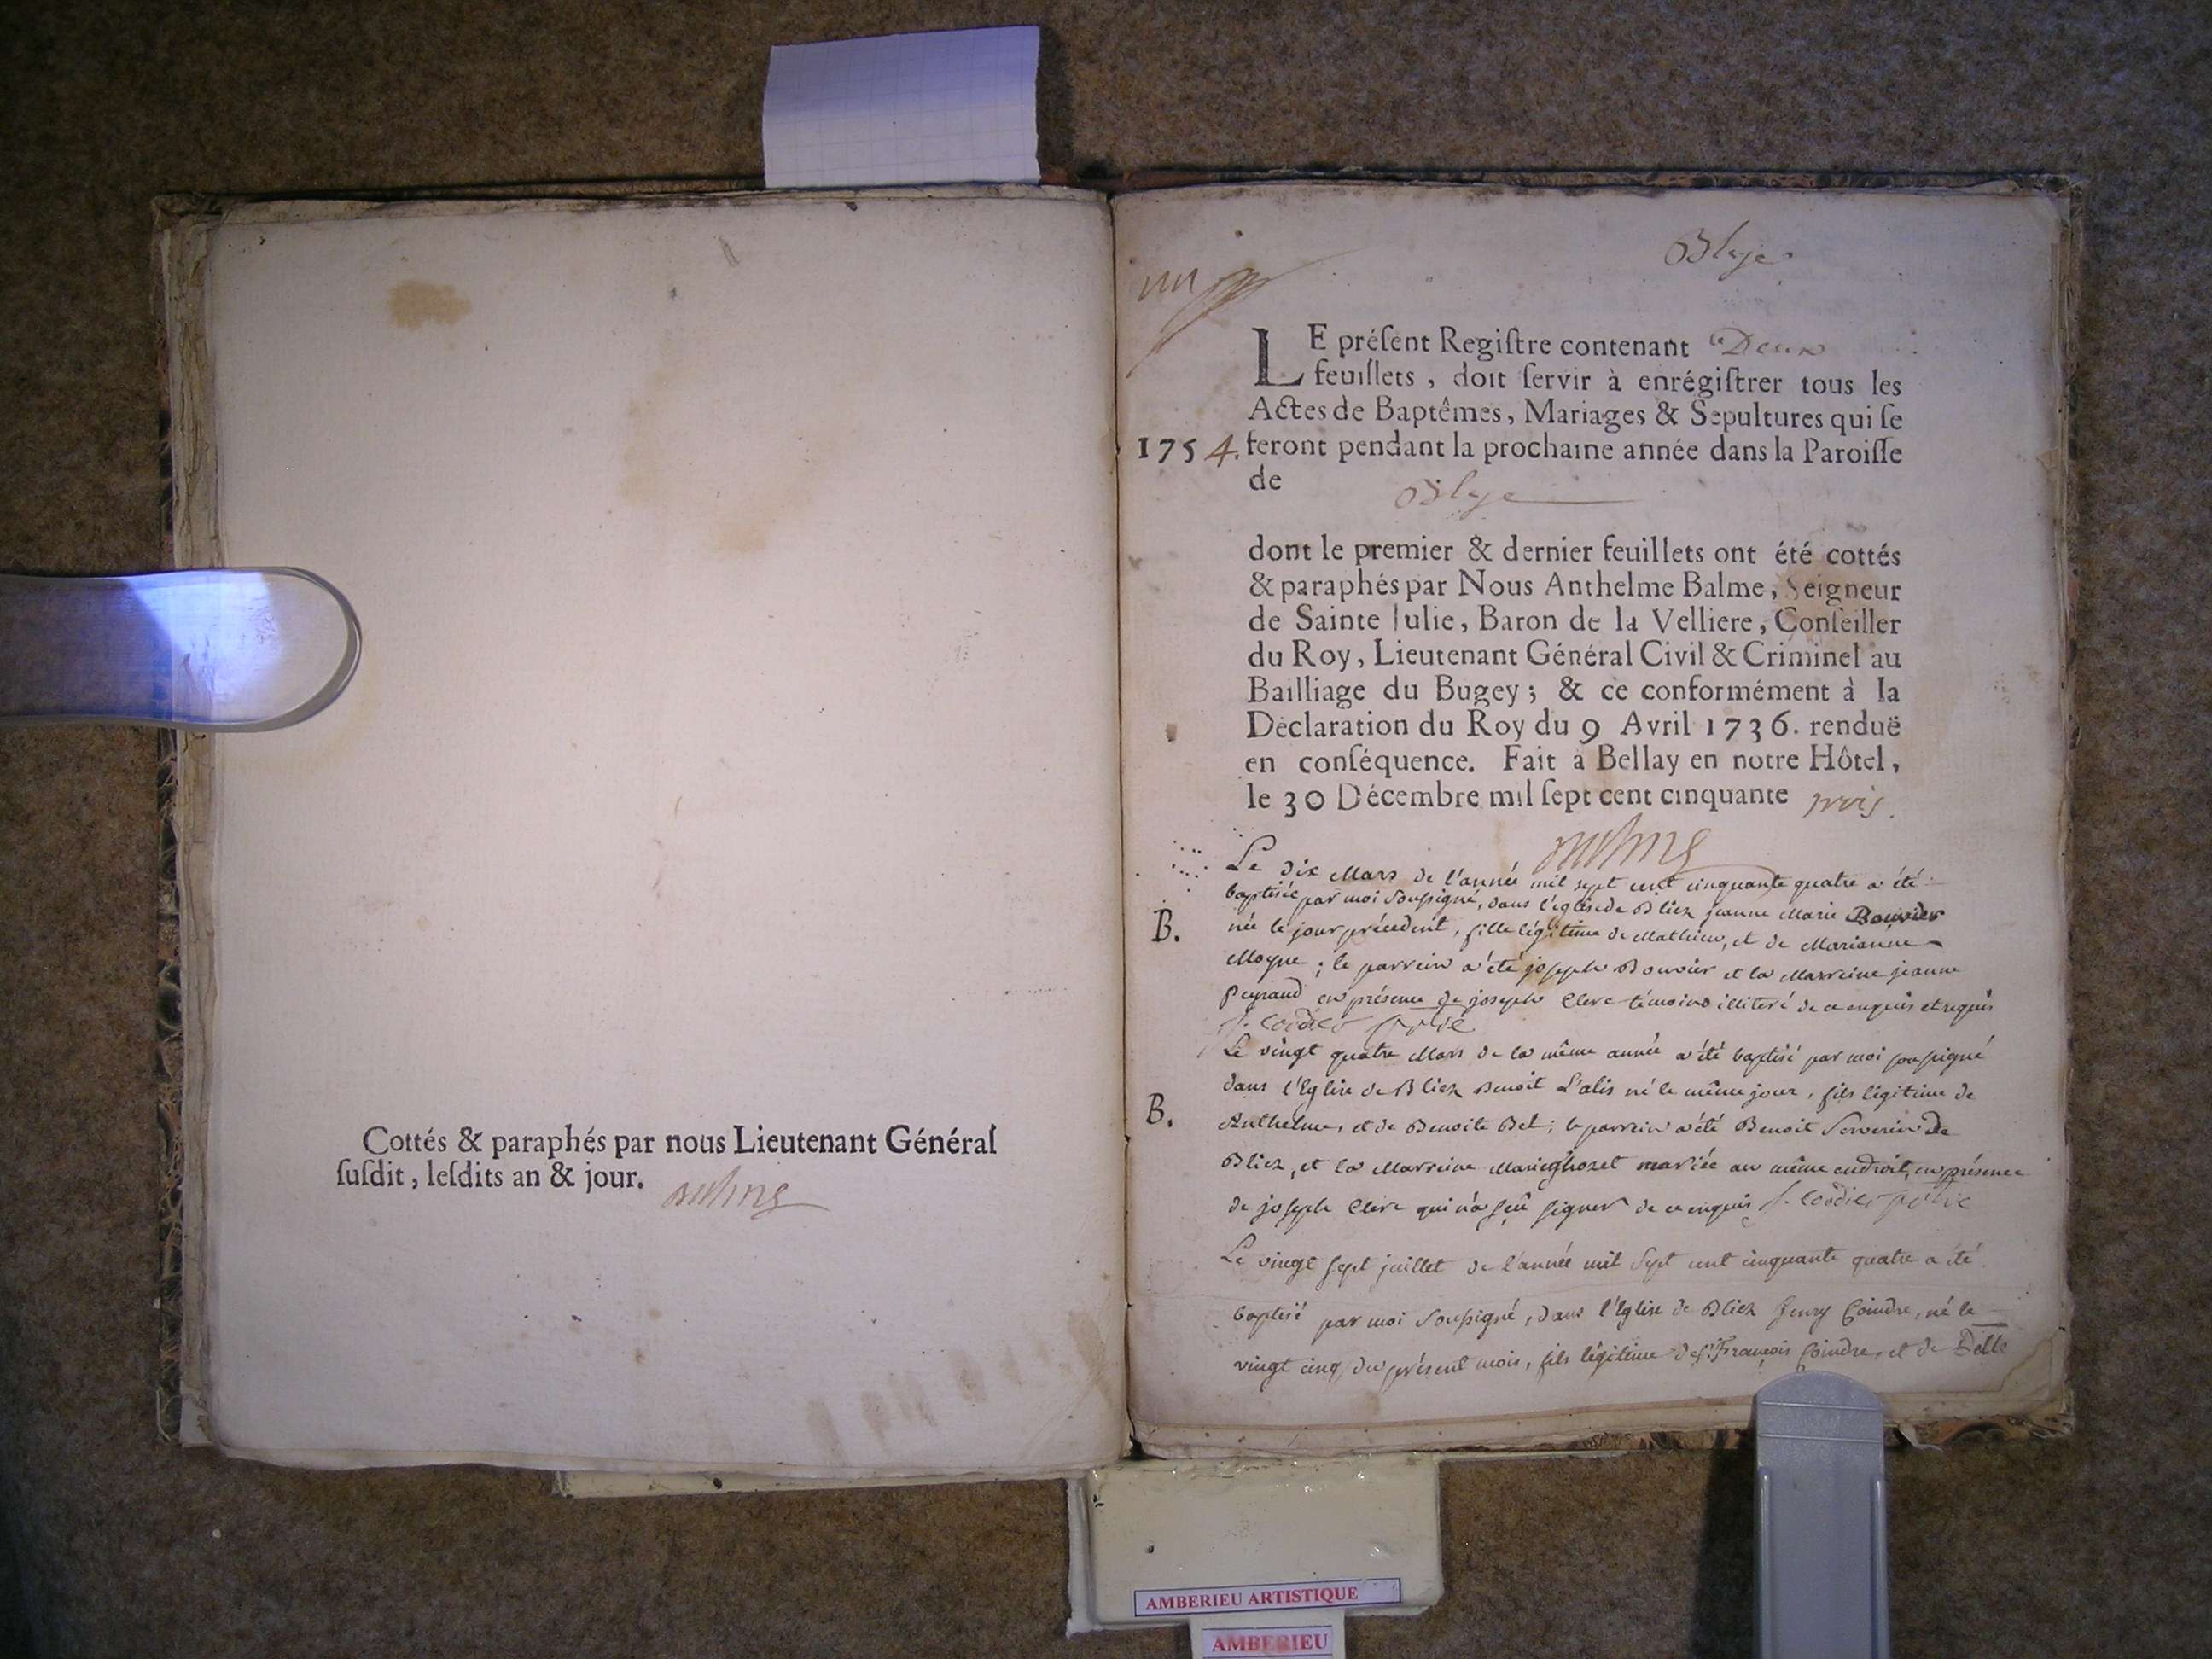 Cottés & paraphés par nous Lieutenant Général
ſuſdit, leſdits an & jour.
un
Blye
LE préſent Regiſtre contenant Deux
feuillets, doit ſervir à enrégiſtrer tous les
Actes de Baptêmes, Mariages & Sepultures qui ſe
1754. feront pendant la prochaine année dans la Paroiſſe
de Blye
dont le premier & dernier feuillets ont été cottés
& paraphés par Nous Anthelme Balme, Seigneur
de Sainte Julie, Baron de la Velliere, Conſeiller
du Roy, Lieutenant Général Civil & Criminel au
Bailliage du Bugey; & ce conformément à la
Déclaration du Roy du 9 Avril 1736. renduë
en conſéquence. Fait à Bellay en notre Hôtel,
le 30 Décembre mil ſept cent cinquante trois.
Le dix Mars de l'année mil sept cent cinquante quatre a été
baptisée par moi Soussigné, dans l'église de Bliez jeanne Marie Bouvier
B.
née le jour précédent, fille légitime de Mathieu, et de Marianne
Moyne; le parrein a été joseph Bouvier et la Marreine jeanne
Peyraud en présence de joseph Clerc témoins illiteré de ce enquis et requis
Le vingt quatre Mars de la même année a été baptisé par moi soussigné
dans l'Eglise de Bliez Benoit L'alis né le même jour, fils légitime de
B.
Anthelme, et de Benoite Bel; le parrein a été Benoit de
Bliez, et la Marreine Marie mariée au même endroit, en présence
de joseph Clerc qui n'a sçû signer de ce enquis
Le vingt sept juillet de l'année mil Sept cent cinquante quatre a été
baptisé par moi Soussigné, dans l'Eglise de Bliez Henry Coindre, né le
vingt cinq du présent mois, fils légitime de Sr. François Coindre, et de Delle
AMBERIEU ARTISTIQUE
AMBERIEU